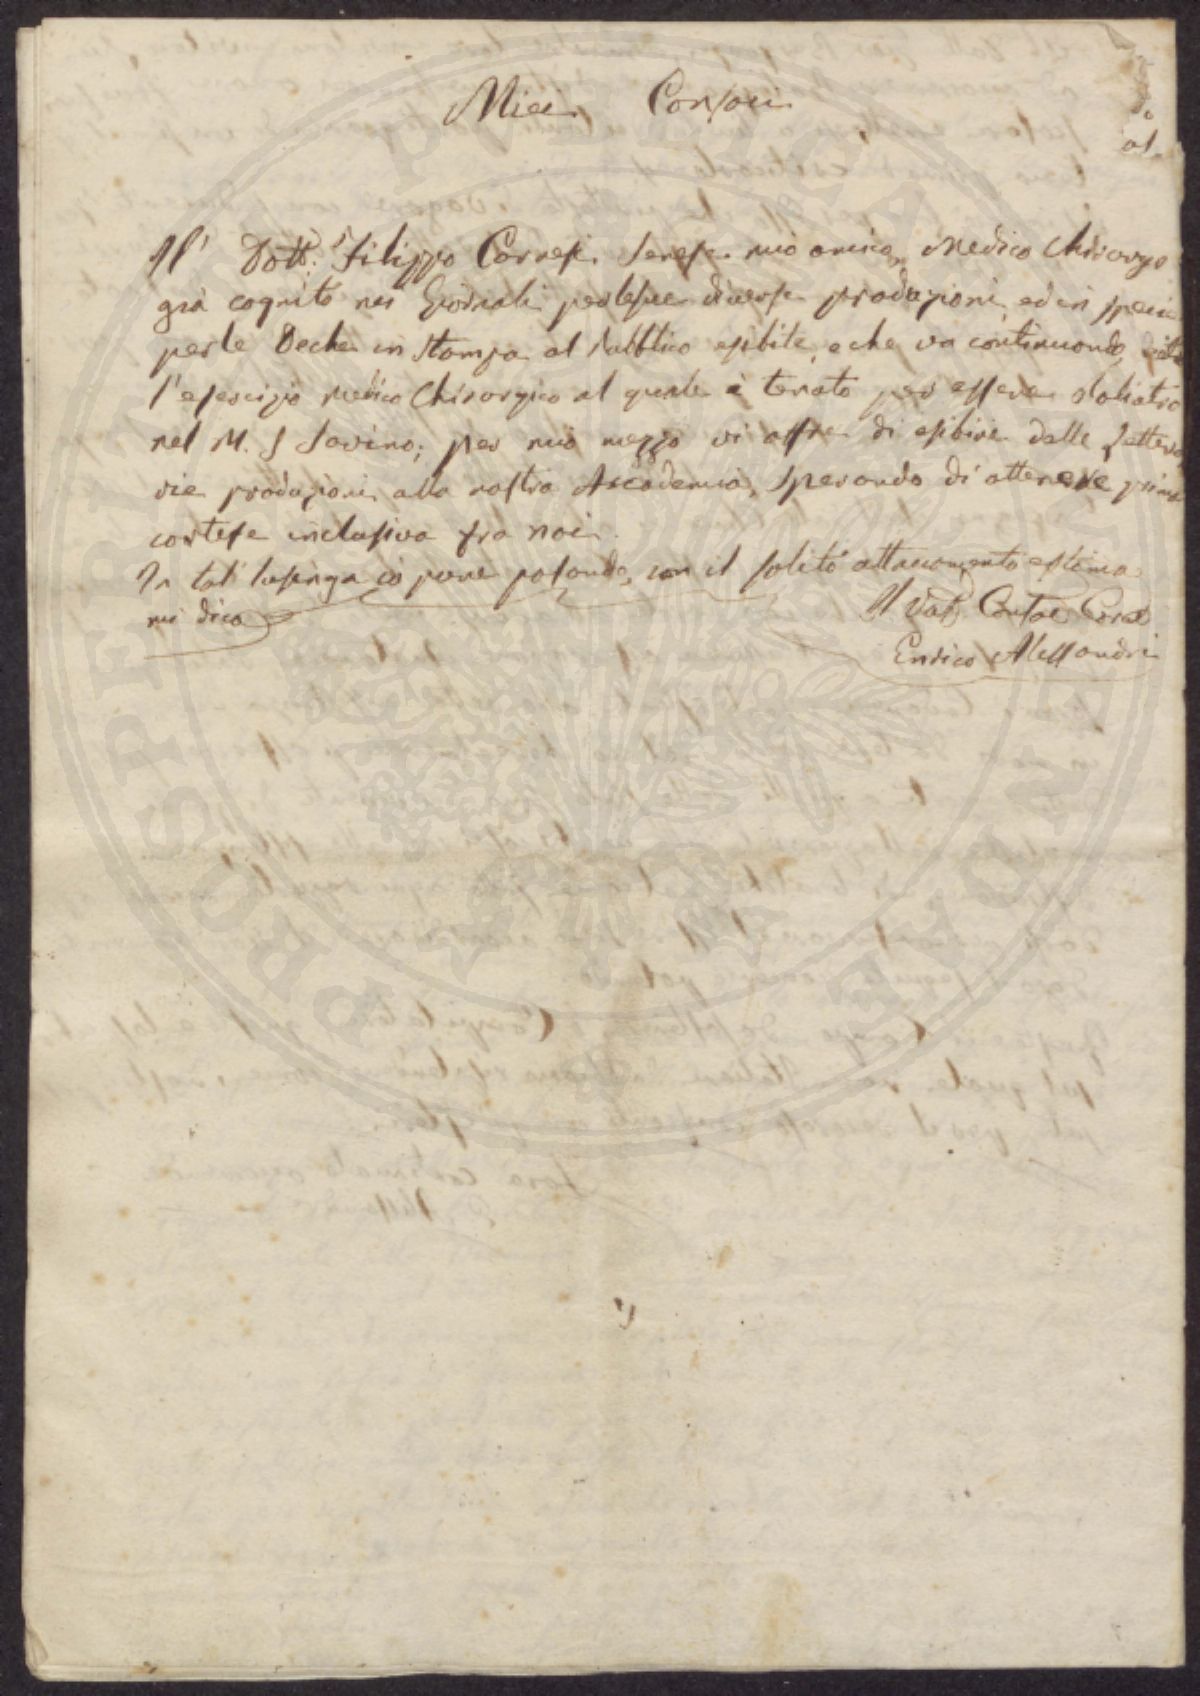 Miei Consoci
Il Dott. Filippo Cornesi Senese mio amico, Medico Chirurgo
già cognito nei Giornali per le sue diverse produzioni, ed in specie
per le Deche in stampa al Pubblico esibite, e che va continuando,
l'esercizio Medico Chirurgico al quale è tenuto per essere
nel M. S Savino; per mio mezzo vi offre di esibire delle Lettera
rie produzioni alla nostra Accademia, sperando di ottenere prima
cortese inclusiva fra noi.
In tal lusinga io pure posando, con il solito attaccamento e stima
mi dico
Il Vos.
Enrico Alessandri